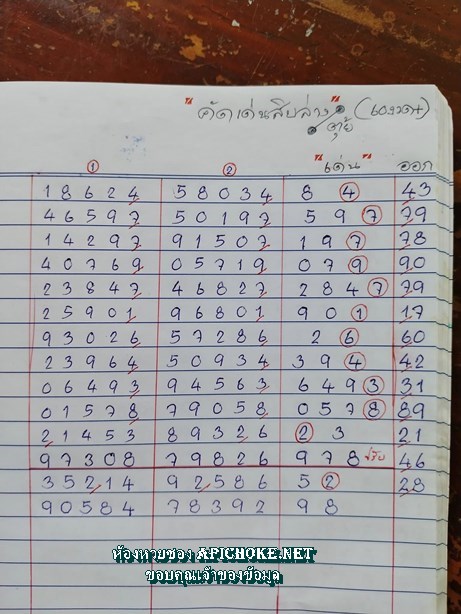 "คัดเด่นสิบล่าง" (เลขวด)
① ② "เด่น" ออก
1 8 6 2 4 5 8 0 3 4 8 4 43
4 6 5 9 7 5 0 1 9 7 5 9 7 79
1 4 2 9 7 9 1 5 0 7 1 9 7 78
4 0 7 6 9 0 5 7 1 9 0 7 9 90
2 3 8 4 7 4 6 8 2 7 2 8 4 7 79
2 5 9 0 1 9 6 8 0 1 9 0 1 17
9 3 0 2 6 5 7 2 8 6 2 6 60
2 3 9 6 4 5 0 9 3 4 3 9 4 42
0 6 4 9 3 9 4 5 6 3 6 4 9 3 31
0 1 5 7 8 7 9 0 5 8 0 5 7 8 89
2 1 4 5 3 8 9 3 2 6 2 3 21
9 7 3 0 8 7 9 8 2 6 9 7 8 46
3 5 2 1 4 9 2 5 8 6 5 2 28
9 0 5 8 4 7 8 3 9 2 9 8
ห้องหวยซอง APICHOKE.NET
ขอบคุณเจ้าของข้อมูล